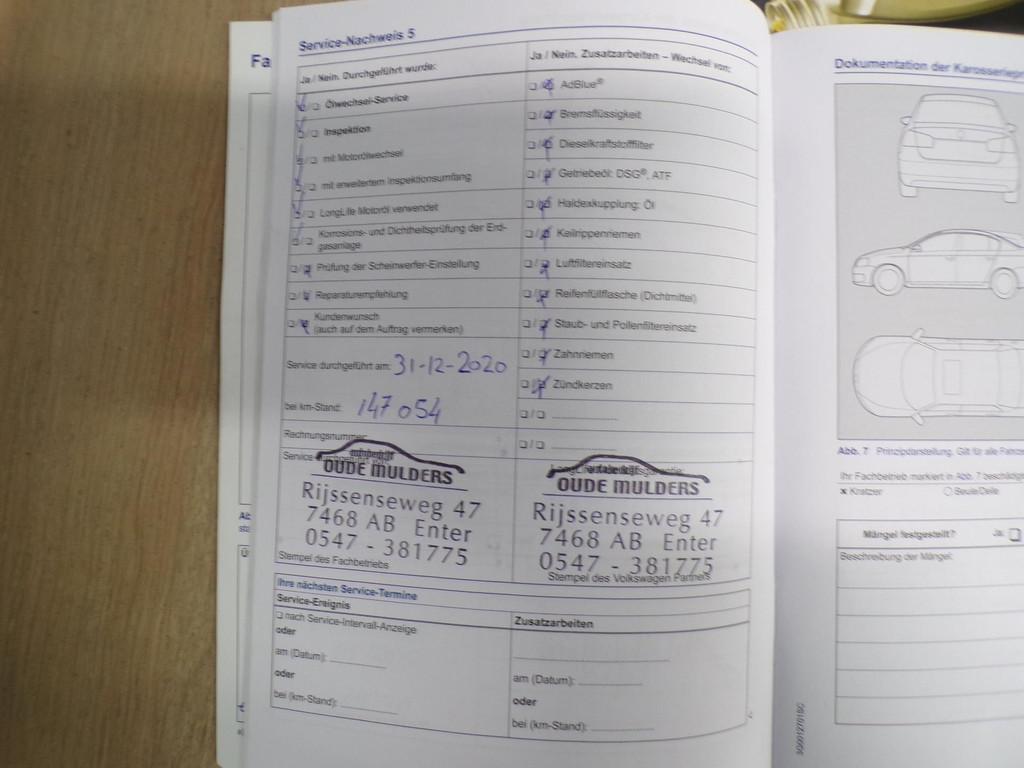 Fa
Service-Nachweis 5
Ja / Nein. Durchgeführt wurde:
Ölwechsel-Service
Inspektion
mit Motorölwechsel
mit erweitertem Inspektionsumfang
LongLife Motoröl verwendet
Korrosions- und Dichtheitsprüfung der Erd-
gasanlage
Prüfung der Scheinwerfer-Einstellung
Reparaturempfehlung
Kundenwunsch
(auch auf dem Auftrag vermerken)
Service durchgeführt am: 31-12-2020
bei km-Stand: 147 054
Rechnungsnummer
Service
OUDE MULDERS
Rijssenseweg 47
7468 AB Enter
0547 - 381775
Stempel des Fachbetriebs
Ja / Nein. Zusatzarbeiten – Wechsel von:
AdBlue®
Bremsflüssigkeit
Dieselkraftstofffilter
Getriebeöl: DSG®, ATF
Haldexkupplung: Öl
Keilrippenriemen
Luftfiltereinsatz
Reifenfüllflasche (Dichtmittel)
Staub- und Pollenfiltereinsatz
Zahnriemen
Zündkerzen
OUDE MULDERS
Rijssenseweg 47
7468 AB Enter
0547 - 381775
Stempel des Volkswagen Partners
Ihre nächsten Service-Termine
Service-Ereignis
nach Service-Intervall-Anzeige
oder
am (Datum):
oder
bei (km-Stand):
Zusatzarbeiten
am (Datum):
oder
bei (km-Stand):
Dokumentation der Karosseriepr
Abb. 7 Prinzipdarstellung. Gilt für alle Fahrze
Ihr Fachbetrieb markiert in Abb. 7 beschädigt
x Kratzer
Beule/Delle
Mängel festgestellt? Ja:
Beschreibung der Mängel: